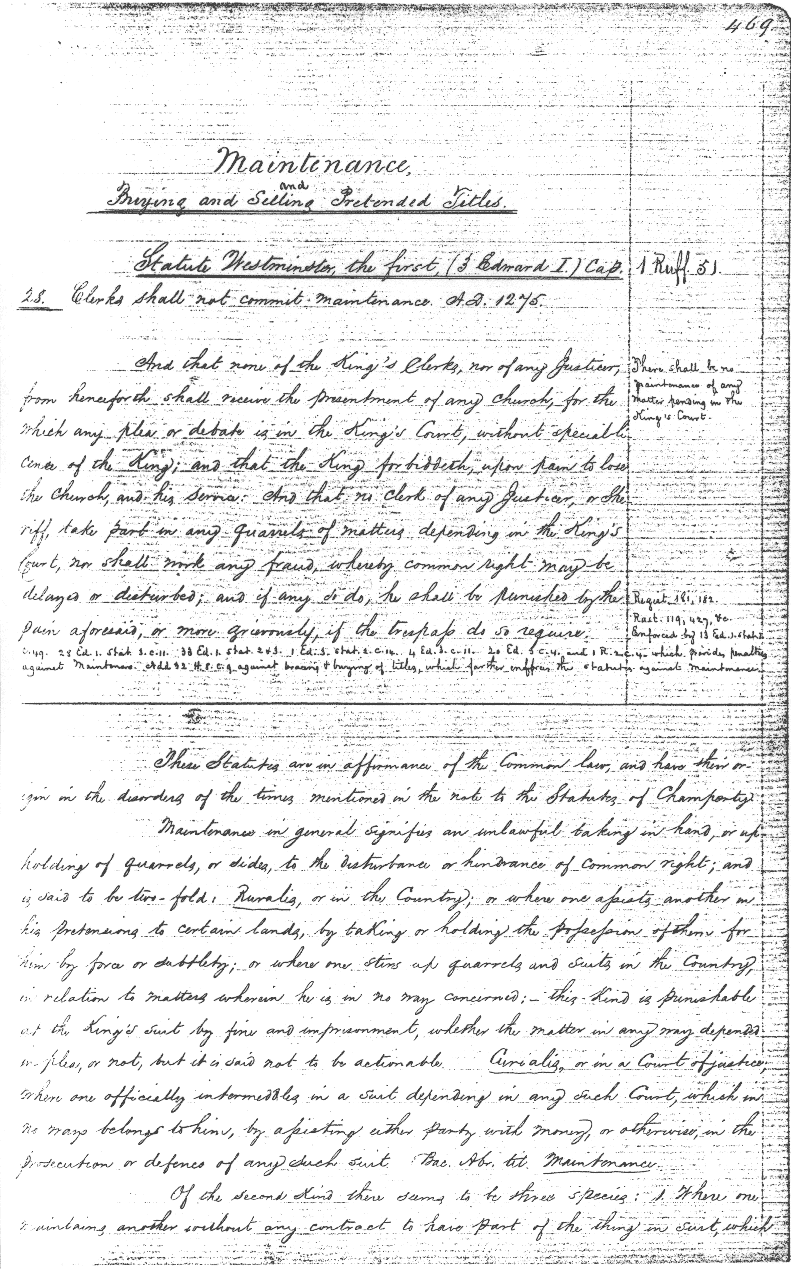 469.
Maintenance,
and
Buying and Selling Pretended Titles.
Statute Westminster, the first, (3 Edward I.) Cap.
1 Ruff. 51.
28. Clerks shall not commit maintenance. A.D. 1275.
And that none of the King's Clerks, nor of any Justicer,
from henceforth shall receive the presentment of any church, for the
which any plea or debate is in the King's Court, without special li-
cence of the King; and that the King forbiddeth, upon pain to lose
the Church, and his service: And that no clerk of any Justicer, or She
riff, take part in any quarrels of matters depending in the King's
Court, nor shall work any fraud, whereby common right may be
delayed or disturbed; and if any so do, he shall be punished by the
pain aforesaid, or more grievously, if the trespass do so require.
There shall be no
maintenance of any
matter pending in the
King's Court.
Regist. 181, 182.
Rast. 119, 427, &c.
Enforced by 13 Ed. 1. Stat. 1
c. 49. 28 Ed. 1. Stat. 3. c. 11. 33 Ed. 1. Stat. 2 & 3. 1 Ed. 3. Stat. 2. c. 14. 4 Ed. 3. c. 11. 20 Ed. 3 c. 4. and 1 R. 2. c. 4. which provides penalties
against Maintenors. Add 32 H. 8. c. 9 against bracing & buying of titles, which farther inforces the statutes against maintenance
These Statutes are in affirmance of the Common law, and have their or-
igin in the disorders of the times mentioned in the note to the Statutes of Champerty.
Maintenance in general signifies an unlawful taking in hand, or up-
holding of quarrels, or sides, to the disturbance or hindrance of common right; and
is said to be two-fold: Ruralis, or in the Country; or where one assists another in
his pretensions to certain lands, by taking or holding the possession of them for
him by force or subtlety; or where one stirs up quarrels and suits in the Country,
in relation to matters wherein he is in no way concerned; - this kind is punishable
at the King's suit by fine and imprisonment, whether the matter in any way depended
in plea, or not, but it is said not to be actionable. Curialis, or in a Court of justice,
where one officially intermeddles in a suit depending in any such Court, which in
no ways belongs to him, by assisting either party with money, or otherwise, in the
prosecution or defence of any such suit. Bac. Abr. tit. Maintenance.
Of the second kind there seems to be three species: 1. Where one
maintains another without any contract to have part of the thing in suit, which